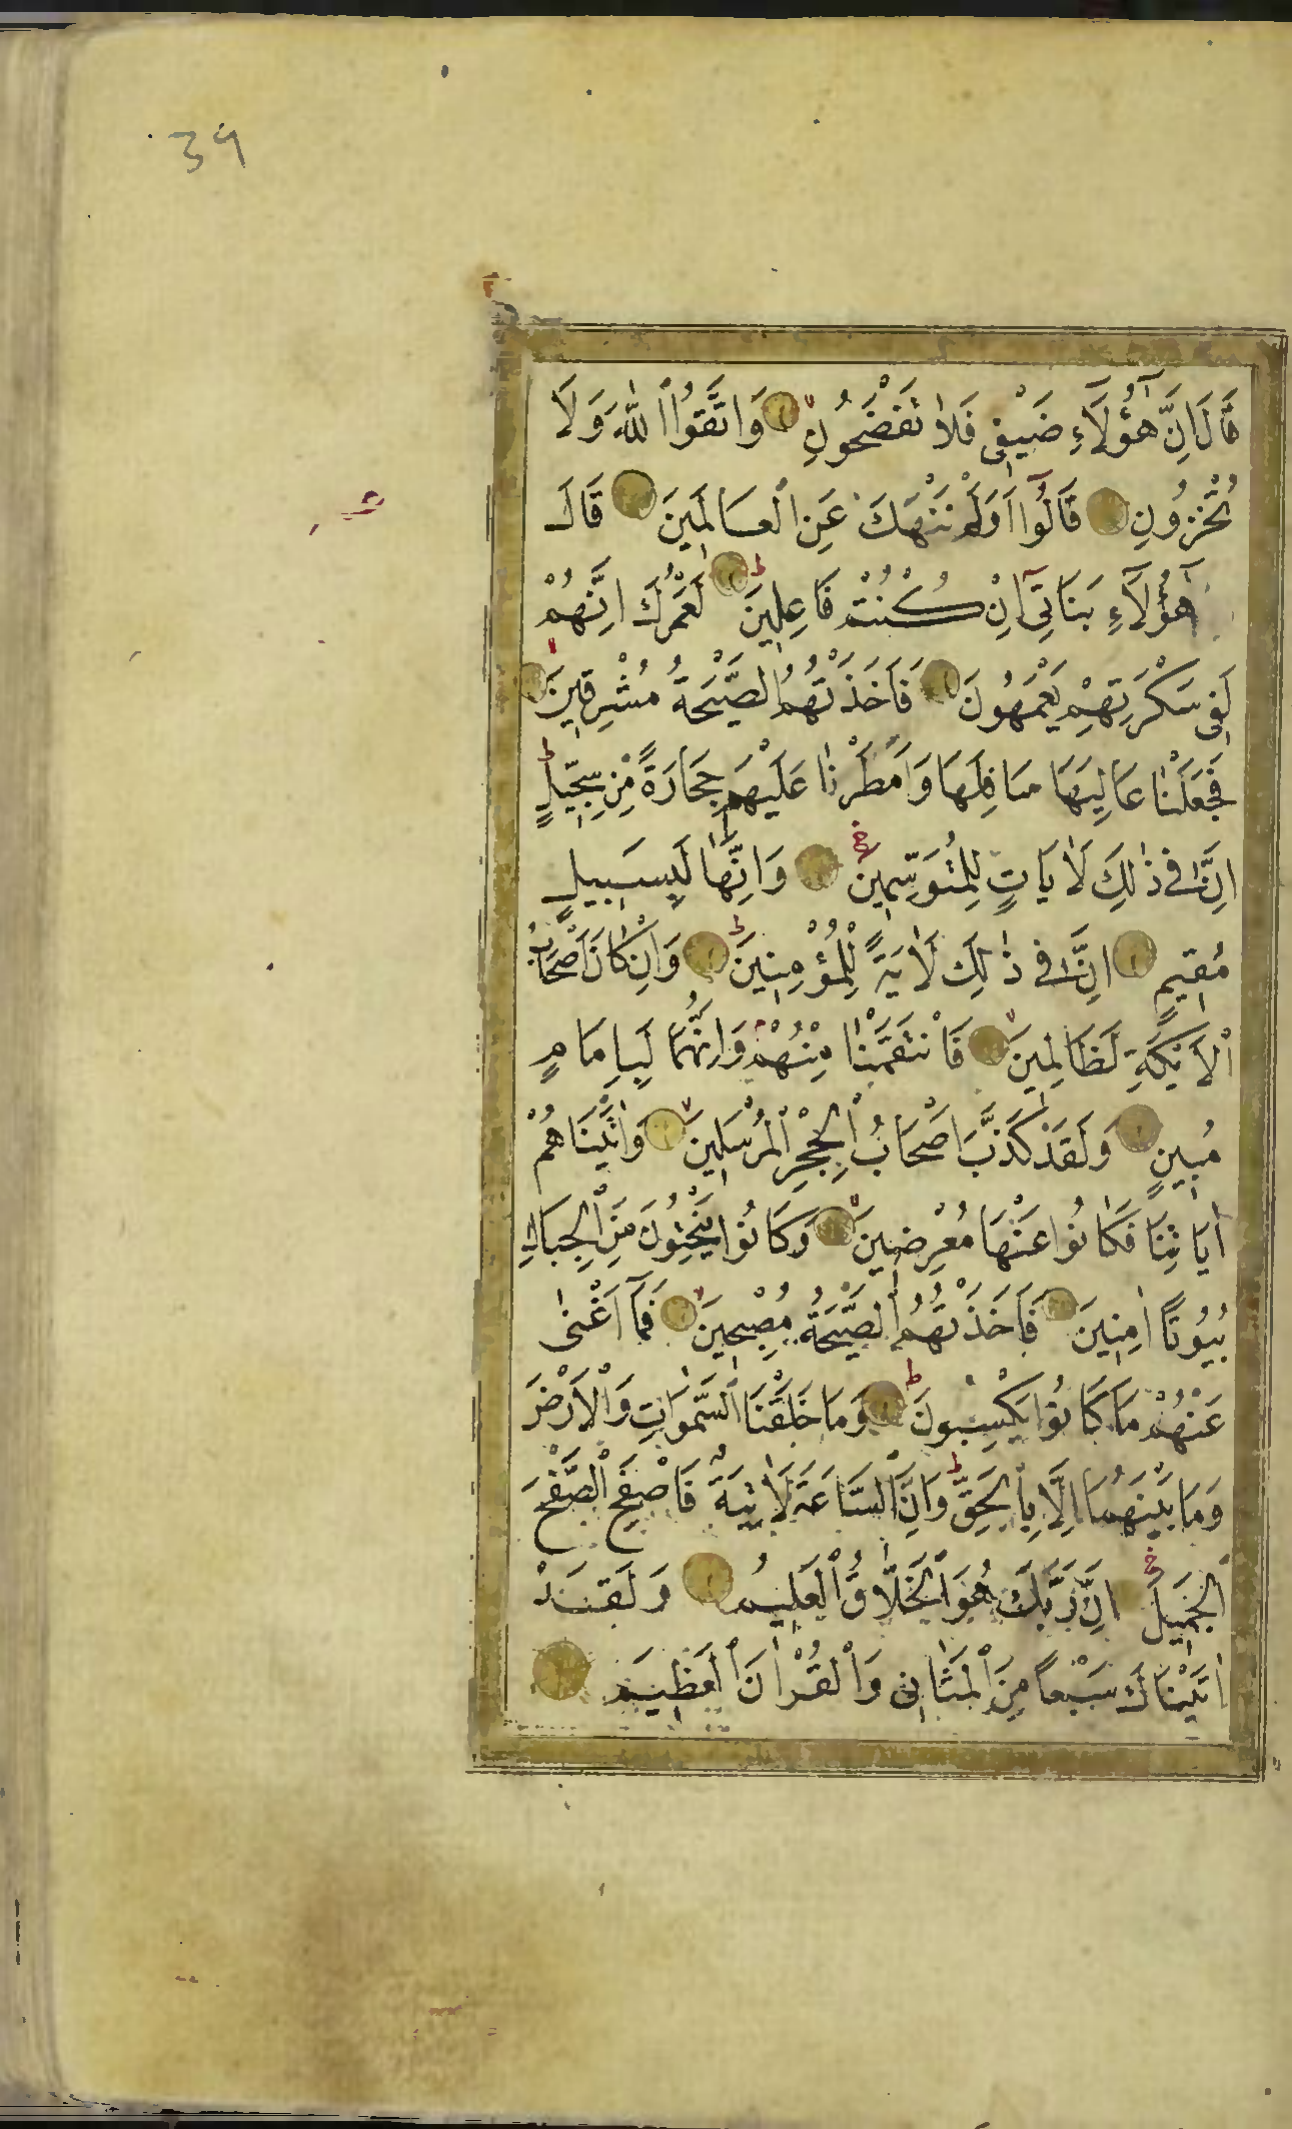 39
قَالَ اِنَّ هٰٓؤُلَآءِ ضَيْفٖى فَلَا تَفْضَحُونِ وَاتَّقُوا اللّٰهَ وَلَا
تُخْزُونِ قَالُٓوا اَوَلَمْ نَنْهَكَ عَنِ الْعَالَمٖينَ قَالَ
هٰٓؤُلَآءِ بَنَاتٖٓى اِنْ كُنْتُمْ فَاعِلٖينَ لَعَمْرُكَ اِنَّهُمْ
لَفٖى سَكْرَتِهِمْ يَعْمَهُونَ فَاَخَذَتْهُمُ الصَّيْحَةُ مُشْرِقٖينَ
فَجَعَلْنَا عَالِيَهَا سَافِلَهَا وَاَمْطَرْنَا عَلَيْهِمْ حِجَارَةً مِنْ سِجّٖيلٍ
اِنَّ فٖى ذٰلِكَ لَاٰيَاتٍ لِلْمُتَوَسِّمٖينَ وَاِنَّهَا لَبِسَبٖيلٍ
مُقٖيمٍ اِنَّ فٖى ذٰلِكَ لَاٰيَةً لِلْمُؤْمِنٖينَ وَاِنْ كَانَ اَصْحَابُ
الْاَيْكَةِ لَظَالِمٖينَ فَانْتَقَمْنَا مِنْهُمْ وَاِنَّهُمَا لَبِاِمَامٍ
مُبٖينٍ وَلَقَدْ كَذَّبَ اَصْحَابُ الْحِجْرِ الْمُرْسَلٖينَ وَاٰتَيْنَاهُمْ
اٰيَاتِنَا فَكَانُوا عَنْهَا مُعْرِضٖينَ وَكَانُوا يَنْحِتُونَ مِنَ الْجِبَالِ
بُيُوتًا اٰمِنٖينَ فَاَخَذَتْهُمُ الصَّيْحَةُ مُصْبِحٖينَ فَمَٓا اَغْنٰى
عَنْهُمْ مَا كَانُوا يَكْسِبُونَ وَمَا خَلَقْنَا السَّمٰوَاتِ وَالْاَرْضَ
وَمَا بَيْنَهُمَا اِلَّا بِالْحَقِّ وَاِنَّ السَّاعَةَ لَاٰتِيَةٌ فَاصْفَحِ الصَّفْحَ
الْجَمٖيلَ اِنَّ رَبَّكَ هُوَ الْخَلَّاقُ الْعَلٖيمُ وَلَقَدْ
اٰتَيْنَاكَ سَبْعًا مِنَ الْمَثَانٖى وَالْقُرْاٰنَ الْعَظٖيمَ